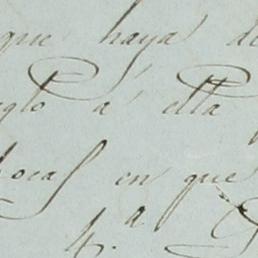 que haya de
eglo á ella
ocas en que